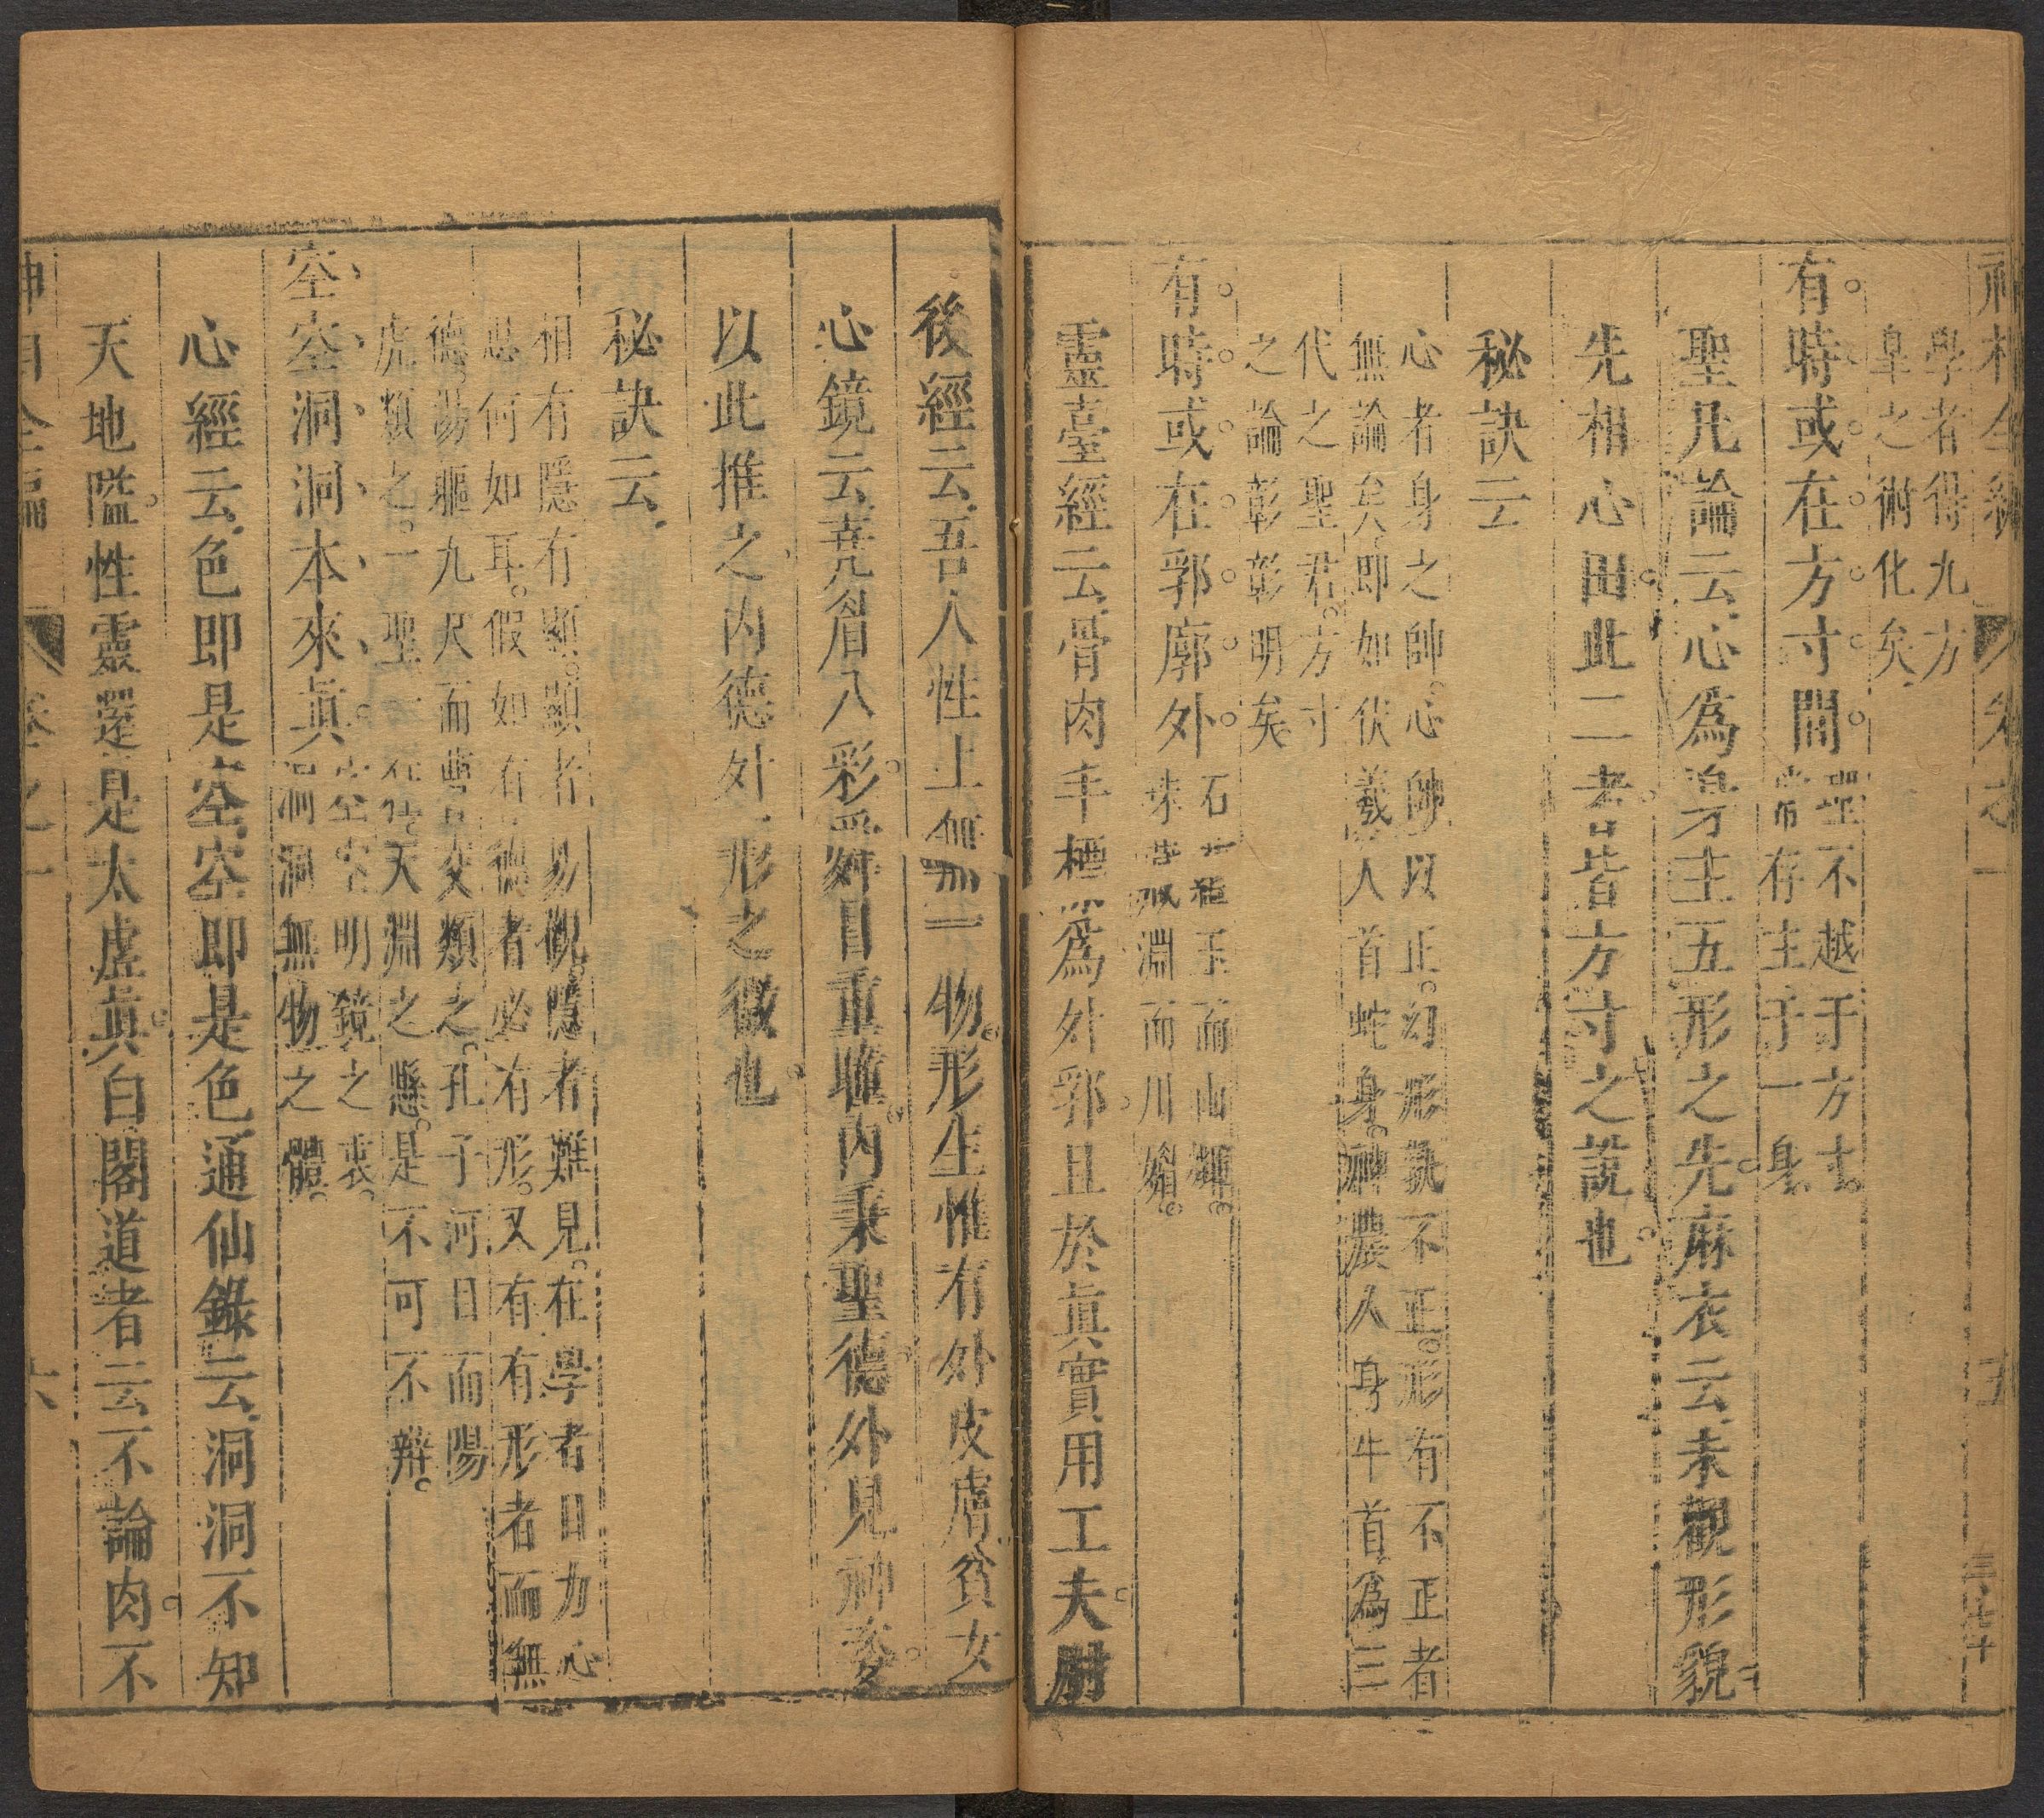 神相全編 卷之一 五
學者得九方
皐之術化矣
有時或在方寸間
聖不越于方寸
常存主于一身
聖凡論云心爲身主五形之先麻衣云未觀形貌
先相心田此二者皆方寸之說也
秘訣云
心者身之帥心帥以正幻形孰不正形有不正者
無論矣即如伏羲人首蛇身神農人身牛首爲三
代之聖君方寸
之論彰彰明矣
有時或在郭廓外
石蘊玉而山輝
珠藏淵而川媚
靈臺經云骨肉手極爲外郭且於眞實用工夫
後經云吾人性上無一物形生惟有外皮膚貧女
心鏡云堯眉八彩舜目重瞳內秉聖德外見神姿
以此推之內德外形之徵也
秘訣云
相有隱有顯顯者易觀隱者難見在學者目力心
思何如耳假如有德者必有形又有有形者而無
德湯軀九尺而與交類之孔子河目而陽
虎類之一聖一狂天淵之懸是不可不辯
空空洞洞本來眞
空空明鏡之裏
洞洞無物之體
心經云色即是空空即是色通仙錄云洞洞不知
天地隘性靈還是太虛眞白閣道者云不論肉不
神相全編 卷之一 六